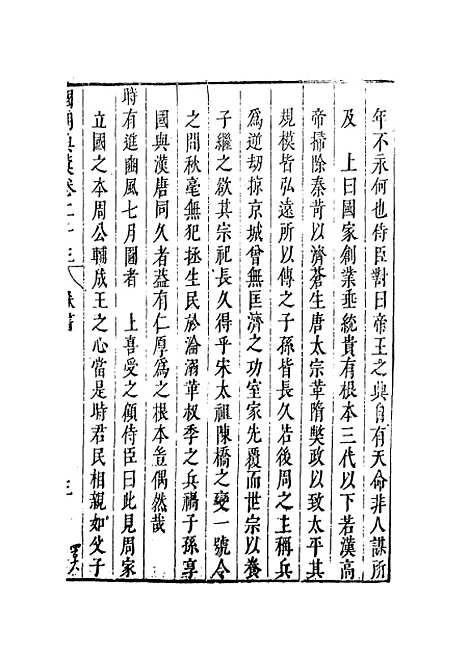 年不永何也侍臣對曰帝王之興自有天命非人謀所
及　上曰國家創業垂統貴有根本三代以下若漢高
帝掃除秦苛以濟蒼生唐太宗革隋獘政以致太平其
規模皆弘遠所以傳之子孫皆長久若後周之主稱兵
爲逆劫掠京城曾無匡濟之功室家先覆而世宗以養
子繼之欲其宗祀長久得乎宋太祖陳橋之變一號令
之間秋毫無犯拯生民於淪溺革叔季之兵禍子孫享
國與漢唐同久者葢有仁厚爲之根本豈偶然哉
時有進豳風七月圖者　上喜受之顧侍臣曰此見周家
立國之本周公輔成王之心當是時君民相親如父子
國朝典彙卷二十三
獻書